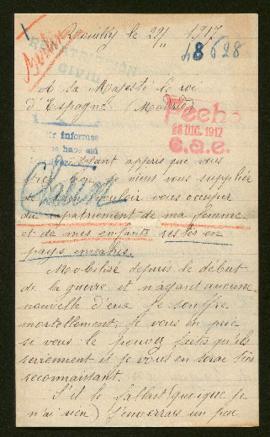 le 22/11 1917
48628
A sa Majesté le roi
d'Espagne. Madrid
Fecho
28 DIC. 1917
C.a.e.
Ayant appris que vous
je viens vous supplier
de bien vouloir vous occuper
du rapatriement de ma femme
et de mes enfants restés en
pays envahis.
Mobilisé depuis le début
de la guerre et n'ayant aucune
nouvelle d'eux je souffre
mortellement, je vous en prie
si vous le pouvez faites qu'ils
reviennent et je vous en serai très
reconnaissant.
S'il le fallait (quoique je
n'ai rien) j'enverrais un peu